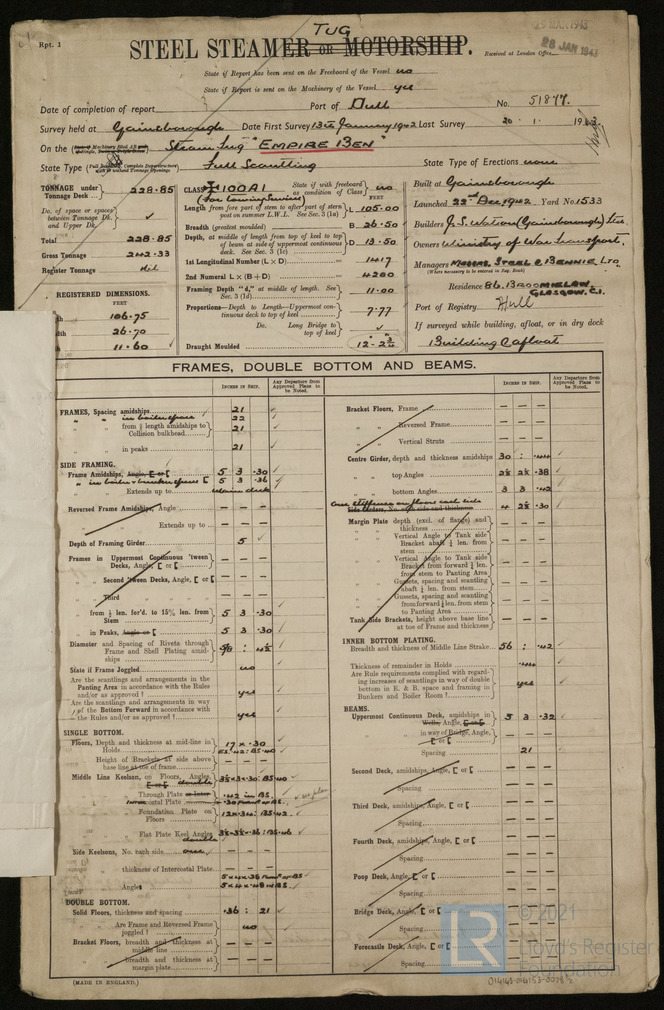 Rpt. 1
TUG
STEEL STEAMER OR MOTORSHIP.
29 MAR 1943
Received at London Office
28 JAN 1943
State if Report has been sent on the Freeboard of the Vessel no
State if Report is sent on the Machinery of the Vessel yes
Date of completion of report
Port of Hull
No. 51877.
Survey held at Gainsborough Date First Survey 13th January 1942 Last Survey 20 . 1. 19
On the Steam Tug "EMPIRE BEN"
State Type Full Scantling
State Type of Erections none
TONNAGE under Tonnage Deck 228.85
Do. of space or spaces between Tonnage Dk. and Upper Dk.
Total 228.85
Gross Tonnage 242.33
Register Tonnage Nil
REGISTERED DIMENSIONS.
FEET
106.75
26.70
11.60
CLASS 100A1 State if with freeboard as condition of Class no
(For Towing Service)
Length from fore part of stem to after part of stern post on summer L.W.L. See Sec. 3 (1a) L 105.00
Breadth (greatest moulded) B 26.50
Depth, at middle of length from top of keel to top of beam at side of uppermost continuous deck. See Sec. 3 (1c) D 13.50
1st Longitudinal Number (L × D) 1417
2nd Numeral L × (B + D) 4200
Framing Depth "d," at middle of length. See Sec. 3 (1d) 11.00
Proportions—Depth to Length—Uppermost continuous deck to top of keel 7.77
Do. Long Bridge to top of keel
Draught Moulded
Built at Gainsborough
Launched 22nd Dec 1942 Yard No. 1533
Builders J.S. Watson (Gainsborough) Ltd
Owners Ministry of War Transport.
Managers Messrs. Steel & Bennie Ltd
(Where necessary to be entered in Reg. Book)
Residence 86, Broomielaw, Glasgow. C.1.
Port of Registry Hull
If surveyed while building, afloat, or in dry dock
Building & afloat
FRAMES, DOUBLE BOTTOM AND BEAMS.
INCHES IN SHIP.
Any Departure from Approved Plans to be Noted.
INCHES IN SHIP.
Any Departure from Approved Plans to be Noted.
FRAMES, Spacing amidships 21
" " in boiler space 22
" " from ½ length amidships to Collision bulkhead 21
" " in peaks 21
SIDE FRAMING.
Frame Amidships, Angle, [ or [ 5 3 .30
" " in boiler & bunker space [ 5 3 .36
" " Extends up to main deck
Reversed Frame Amidships, Angle
" " Extends up to
Depth of Framing Girder 5
Frames in Uppermost Continuous 'tween Decks, Angle, [ or [
" Second 'tween Decks, Angle, [ or [
" Third
" from ½ len. for'd. to 15% len. from Stem 5 3 .30
" in Peaks, Angle or [ 5 3 .30
Diameter and Spacing of Rivets through Frame and Shell Plating amidships
State if Frame Joggled no
Are the scantlings and arrangements in the Panting Area in accordance with the Rules and/or as approved ? yes
Are the scantlings and arrangements in way of the Bottom Forward in accordance with the Rules and/or as approved ? yes
SINGLE BOTTOM.
Floors, Depth and thickness at mid-line in Holds 17 × .30
Height of Brackets at side above base line at toe of frame
Middle Line Keelson, on Floors, Angles, [ or [ double
Through Plate or Intercostal Plate
Foundation Plate on Floors
Flat Plate Keel Angles double
Side Keelsons, No. each side one
" thickness of Intercostal Plate
" Angles
DOUBLE BOTTOM.
Solid Floors, thickness and spacing .36 : 21
" Are Frame and Reversed Frame joggled ? no
Bracket Floors, breadth and thickness at middle line
" breadth and thickness at margin plate
Bracket Floors, Frame
" " Reversed Frame
" " Vertical Struts
Centre Girder, depth and thickness amidships 30 : .44
" top Angles 2½ 2½ .38
" bottom Angles 3 3 .42
one stiffener on floors each side
Side Girders, No. each side and thickness 4 2½ .30
Margin Plate depth (excl. of flange) and thickness
" Vertical Angle to Tank side Bracket abaft ¼ len. from stem
" Vertical Angle to Tank side Bracket from forward ¼ len. from stem to Panting Area
" Gussets, spacing and scantling abaft ¼ len. from stem
" Gussets, spacing and scantling from forward ¼ len. from stem to Panting Area
Tank Side Brackets, height above base line at toe of Frame and thickness
INNER BOTTOM PLATING.
Breadth and thickness of Middle Line Strake 56 : .42
Thickness of remainder in Holds
Are Rule requirements complied with regarding increases of scantlings in way of double bottom in E. & B. space and framing in Bunkers and Boiler Room ? yes
BEAMS.
Uppermost Continuous Deck, amidships in Wells, Angle, [ or [ 5 3 .32
" in way of Bridge, Angle, [ or [
Spacing 21
Second Deck, amidships, Angle, [ or [
Spacing
Third Deck, amidships, Angle, [ or [
Spacing
Fourth Deck, amidships, Angle, [ or [
Spacing
Poop Deck, Angle, [ or [
Spacing
Bridge Deck, Angle, [ or [
Spacing
Forecastle Deck, Angle, [ or [
Spacing
(MADE IN ENGLAND.)
LR
© 2021
Lloyd's Register
Foundation